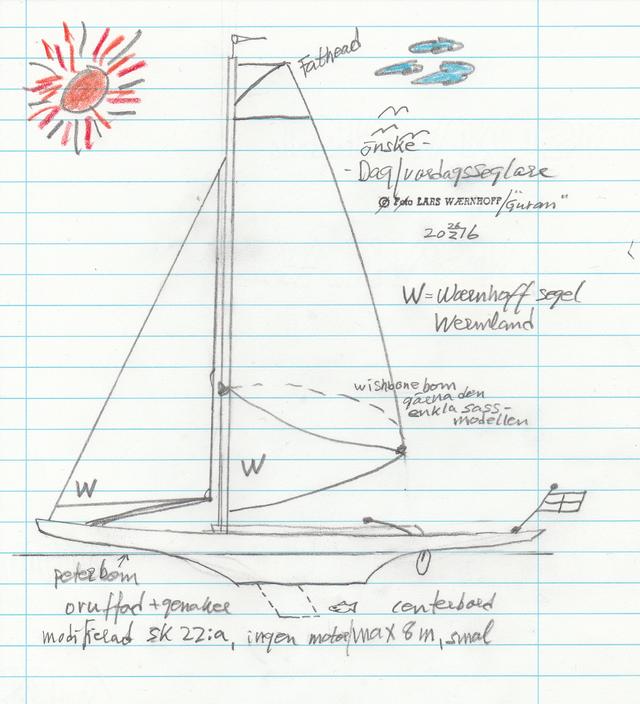 Fathead
önske-
- Dag/vardagsseglare
Foto LARS WÆRNHOFF/"Guran"
20 26/2 16
W = Wærnhoff segel
Wermland
wishbonebom
gärna den
enkla sass-
modellen
W
W
peterbom
oruffad + genaker centerbord
modifierad SK 22:a, ingen motor/max 8 m, smal